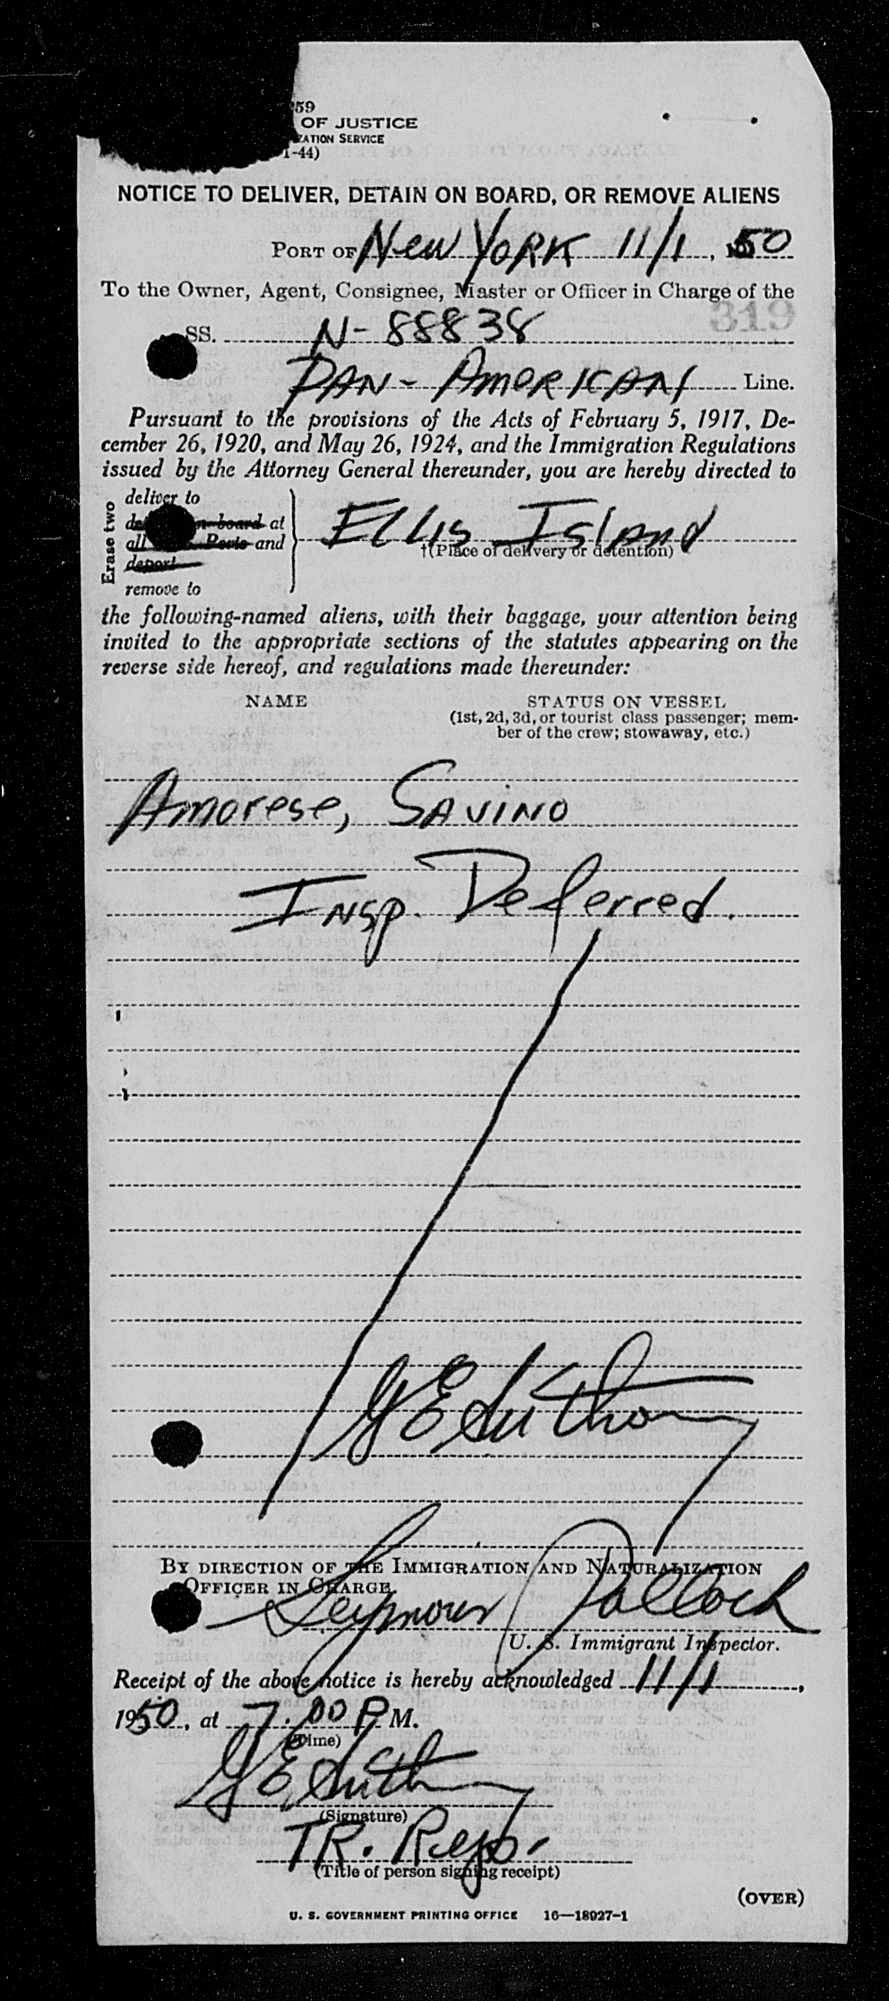 259
OF JUSTICE
ZATION SERVICE
1-44)
NOTICE TO DELIVER, DETAIN ON BOARD, OR REMOVE ALIENS
PORT OF New York 11/1, 1950
To the Owner, Agent, Consignee, Master or Officer in Charge of the
319
SS. N-88838
PAN-AMERICAN Line.
Pursuant to the provisions of the Acts of February 5, 1917, De-
cember 26, 1920, and May 26, 1924, and the Immigration Regulations
issued by the Attorney General thereunder, you are hereby directed to
Erase two
deliver to
n board at
all Ports and
deport
remove to
Ellis Island
†(Place of delivery or detention)
the following-named aliens, with their baggage, your attention being
invited to the appropriate sections of the statutes appearing on the
reverse side hereof, and regulations made thereunder:
NAME STATUS ON VESSEL
(1st, 2d, 3d, or tourist class passenger; mem-
ber of the crew; stowaway, etc.)
Amorese, SAVINO
Insp. Deferred.
BY DIRECTION OF THE IMMIGRATION AND NATURALIZATION
OFFICER IN CHARGE
Seymour Pollock
U. S. Immigrant Inspector.
Receipt of the above notice is hereby acknowledged 11/1,
1950, at 7:00 P M.
(Time)
(Signature)
TR. Rep.
(Title of person signing receipt)
(OVER)
U. S. GOVERNMENT PRINTING OFFICE 16—18927-1